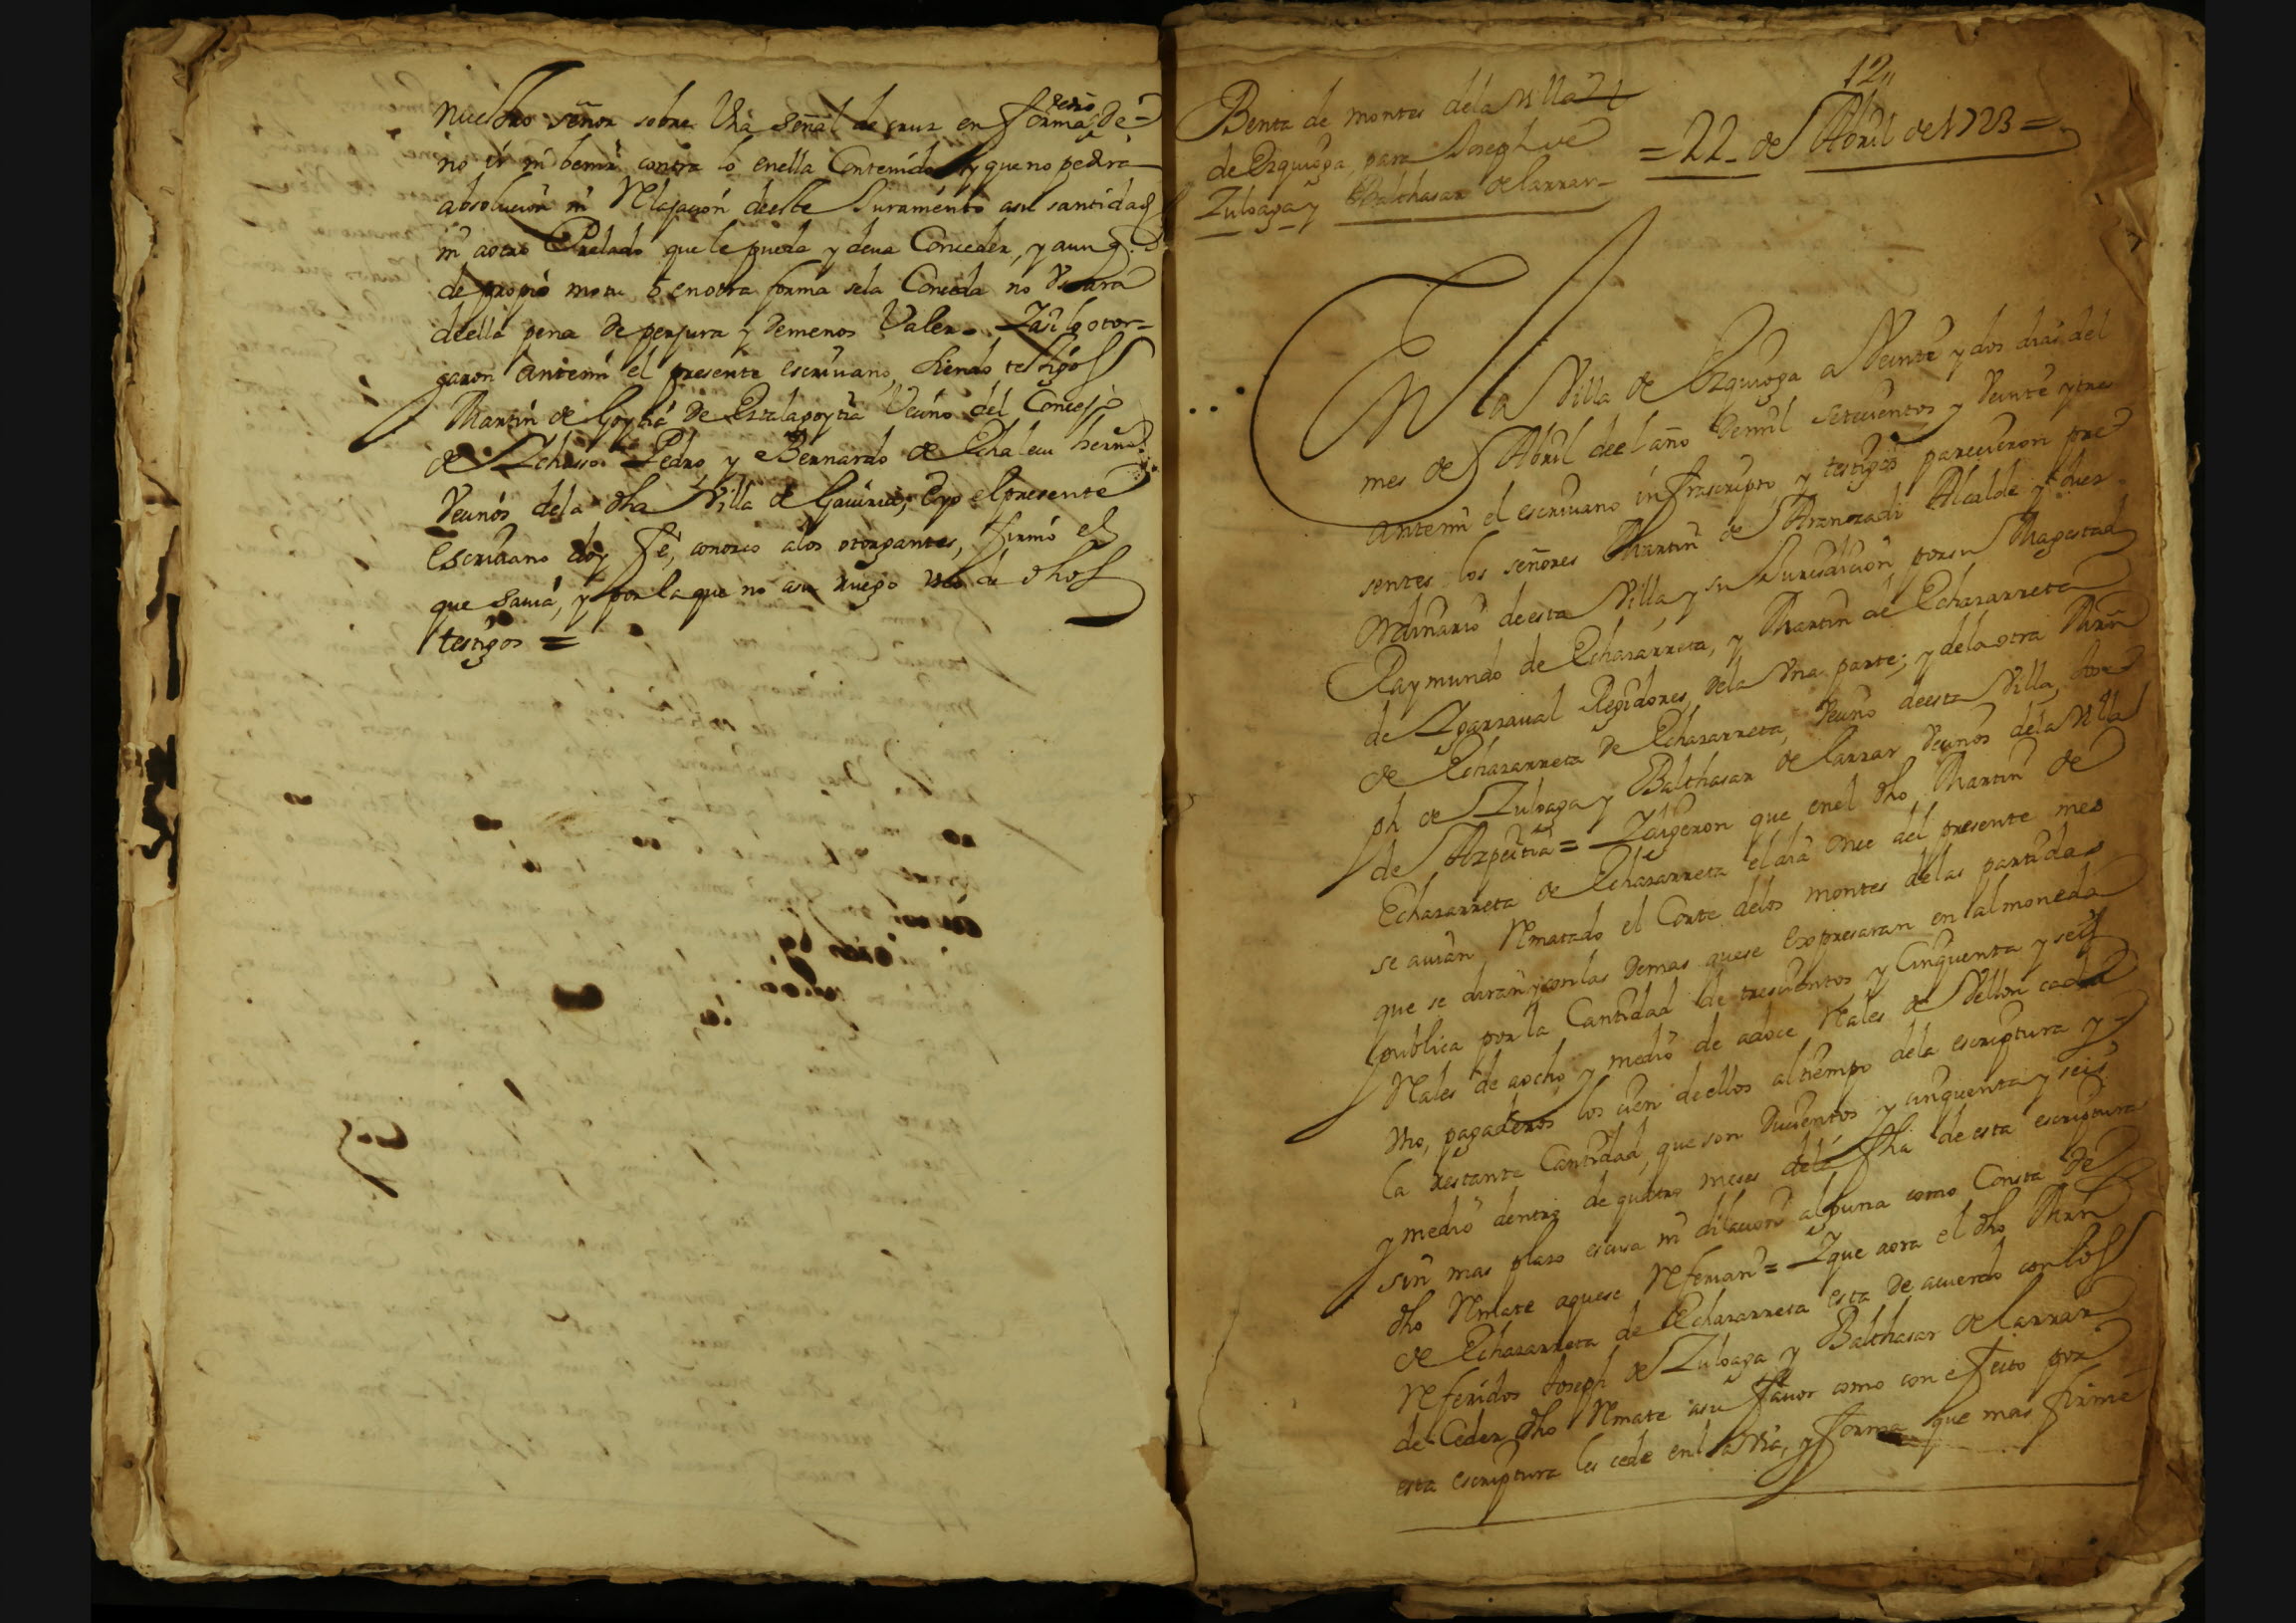 nuestro señor sobre Una señal de cruz en forma de dro de
no ir ni benir contra lo enella Contenido y que no pedira
absolucion ni Relajacion deeste Juramento asu santidad
ni aotro Prelado que le pueda y deva Conceder, y aunq.
de propio motu o enotra forma sela Conceda no Usara
deella pena de perjura y demenos Valer. Yasi lo otor-
garon antemi el presente escrivano, siendo testigos
Martin de Goytia de vecino del Concejo
de Ychasso Pedro y Bernardo de Echalecu herm.s
Vecinos dela dha Villa de Gaviria, Eyo el presente
escrivano doy fe, conozco alos otorgantes, firmó el
que savia, y por la que no asu ruego uno de dhos
testigos =
12
Benta de montes dela Villa
de Ezquioga, para Joseph de
Zuloaga y Balthasar de larrar
= 22 de Abril de 1723 =
En la Villa de Ezquioga a Veinte y dos dias del
mes de Abril deel año demil setecientos y Veinte y tres
antemi el escrivano infrascripto, y testigos parecieron pre
sentes los señores Martin de Aranzadi Alcalde y Juez
ordinario deesta Villa, y su Jurisdicion porsu Magestad
Raymundo de Echazarreta, y Martin de Echazarreta
de Ygarzaval Regidores, dela Una parte; y dela otra Mrn
de Echazarreta de Echazarreta, Vecino deesta Villa, Jose
ph de Zuloaga y Balthasar de larrar Vecinos dela Villa
de Azpeitia = Ydigeron que enel dho Martin de
Echazarreta de Echazarreta eldia once del presente mes
se avian Rematado el Corte delos montes delas partidas
que se diran y conlas demas quese Expresaran en almoneda
publica por la Cantidad de trescientos y Cinquenta y seis
Reales de aocho y medio de adoce Reales de Vellon cada
Uno, pagaderos los cien deellos altiempo dela escriptura y
la restante Cantidad, que son Ducientos y cinquenta y seis
y medio dentro de quatro meses dela fha de esta escriptura
sin mas plazo escusa ni dilacion alguna como Consta de
dho Remate aquese Refieran = Yque aora el dho Mrn
de Echazarreta de Echazarreta esta de acuerdo con los
Referidos Joseph de Zuloaga y Balthasar de larrar
de Ceder dho Remate asu favor como con efeito por
esta escriptura les cede enla via, y forma que mas firme